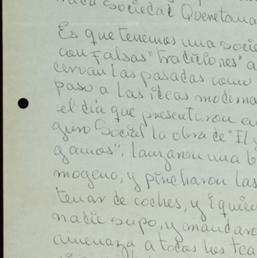 nada sociedad Queretana
Es que tenemos una socie
con falsas "tradiciones" a
cervan las pasadas como
paso a las ideas moderna
el día que presentaron en
guro Social la obra de "El
gamos", lanzaron una b
mogeno, y pincharon las
tenar de coches, y
nadie supo, y mandaro
amenaza a todos los tea